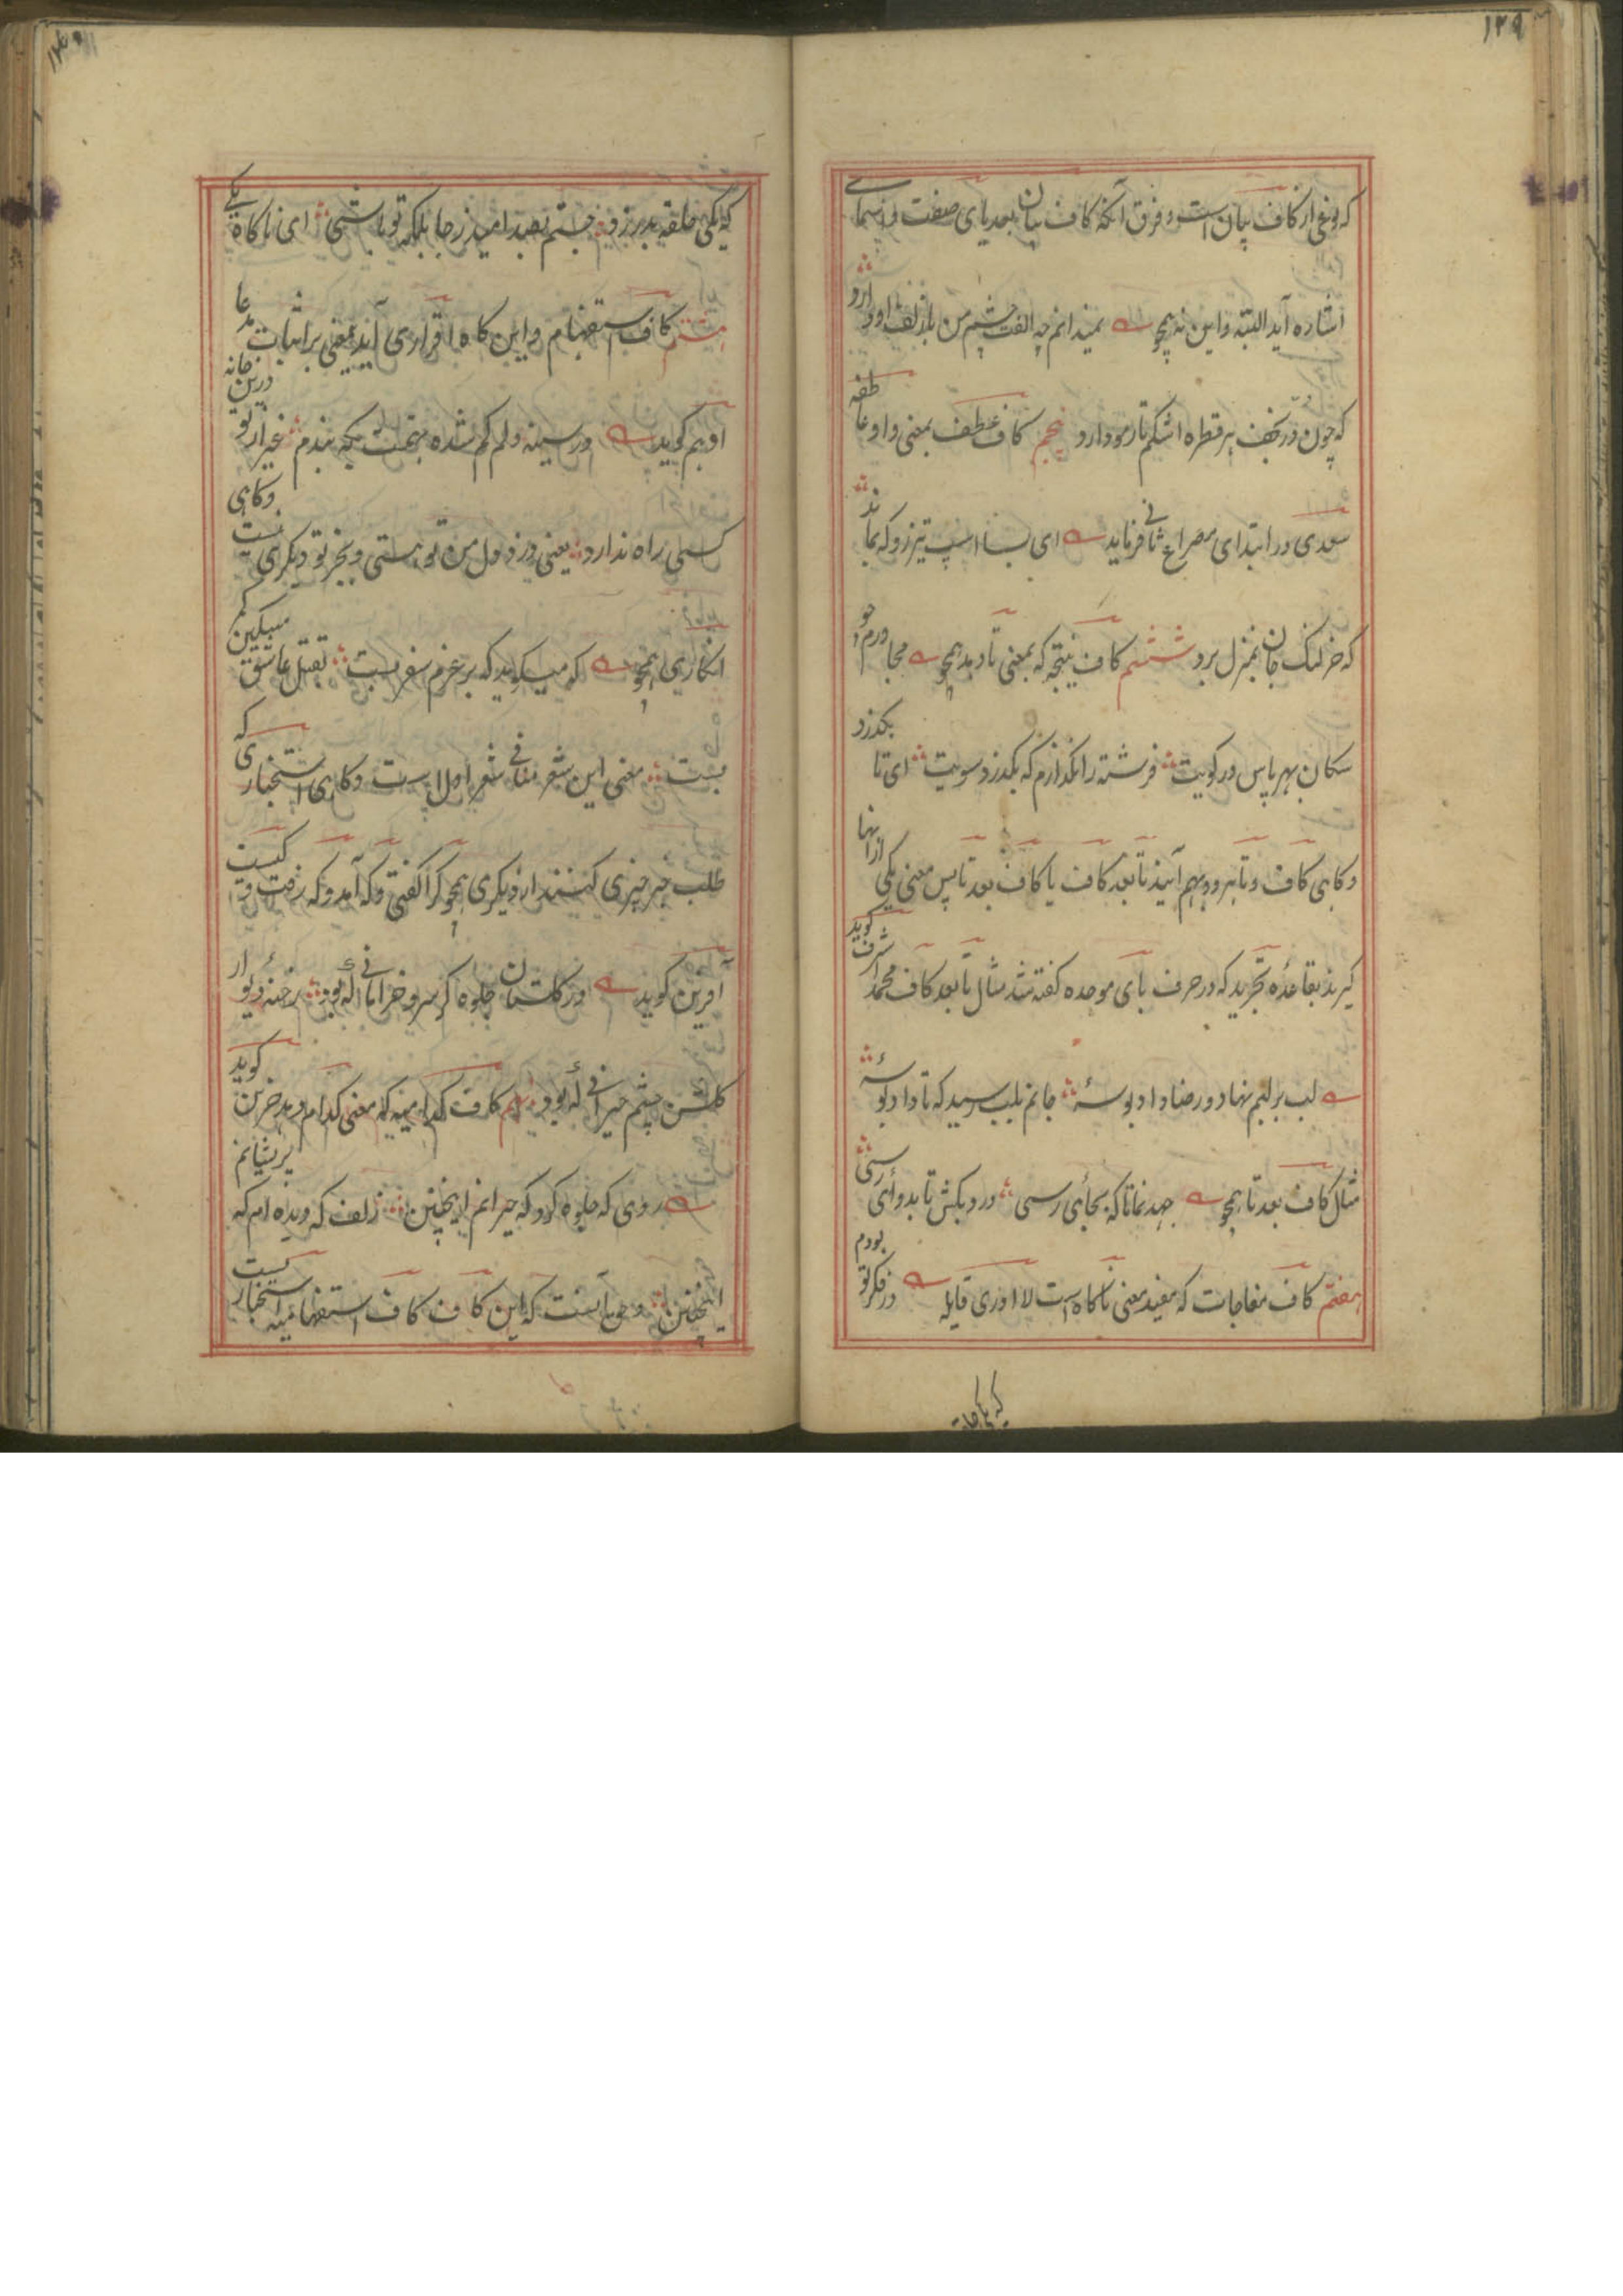 ۱۲۹
که نوعی از کاف بیان است و فرق آنکه کاف بیان بعد یای صفت و اسمای
اشاره آید البته و این نه همچو نمیدانم چه الفت چشم من بازلف او دارد
که چون در نجف هر قطره اشکم تار مو دارد پنجم کاف عطف بمعنی واو عاطفه
سعدی در ابتدای مصراع ثانی فرماید ای بسا اسپ تیزرو که بماند
که خر لنگ جان بمنزل برد ششم کاف نتیجه که بمعنی تا دهد همچو مجاورم چو
سکان بهر پاس در کویت فرشته را نگذارم که بگذرد سویت ای تا بگذرد
و کاهی کاف و تا هر دو بهم آیند تا بعد کاف یا کاف بعد تا پس معنی یکی از انها
گیرند بقاعده تجرید که در حرف بای موحده گفته شد مثال تا بعد کاف محمد اشرف گوید
لب بر لبم نهاد و رضا داد بوسهٔ جانم بلب رسید که تا داد بوسهٔ
مثال کاف بعد تا همچو جهد نما تا که بجائی رسی درد بکش تا بدوائی رسی
هفتم کاف مفاجات که مفید معنی ناگاه است لا ادری قایله در فکر تو بودم
که یکی حلقه بدر زد جستم بصد امید ز جا بلکه تو باشی ای ناگاه یکی
هشتم کاف استفهام و این گاه اقراری آید یعنی بر اثبات مدعا
او هم گوید در سینه دلم گم شده تهمت بکه بندم غیر از تو درین خانه
کسی راه ندارد یعنی دزد دل من تو هستی و بجز تو دیگری نیست و کاهی
انکاری همچو که میگوید که بر عزم سفر بست بقتل عاشق مسکین کمر
بست معنی این شعر منافی شعر اول است و کاهی استخباری که
طلب خبر چیزی کنند از دیگری همچو کرا گفتی و که آمد و که رفت و کیست
آفرین گوید در گلستان جلوه گر سرو خرامانی که بود رخنه دیوار
گلشن چشم حیرانی که بود نهم کاف کدامیه که معنی کدام دهد حزین گوید
روی که جلوه کرد که حیرانم اینچنین زلف که دیده ام که پریشانم
اینچنین و حق آنست که این کاف کاف استفهامیه استخباریست